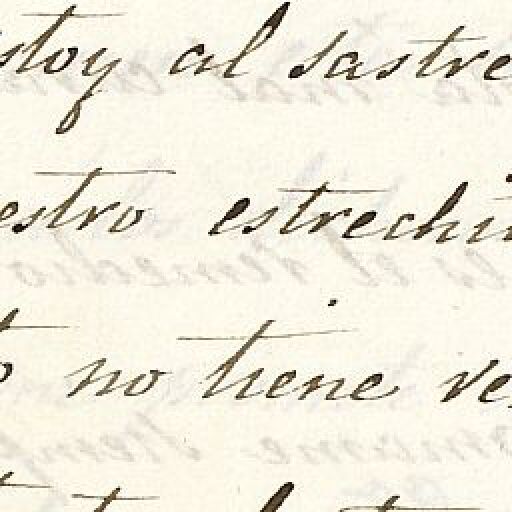 stoy al sastre
estro estrechi
no tiene ve